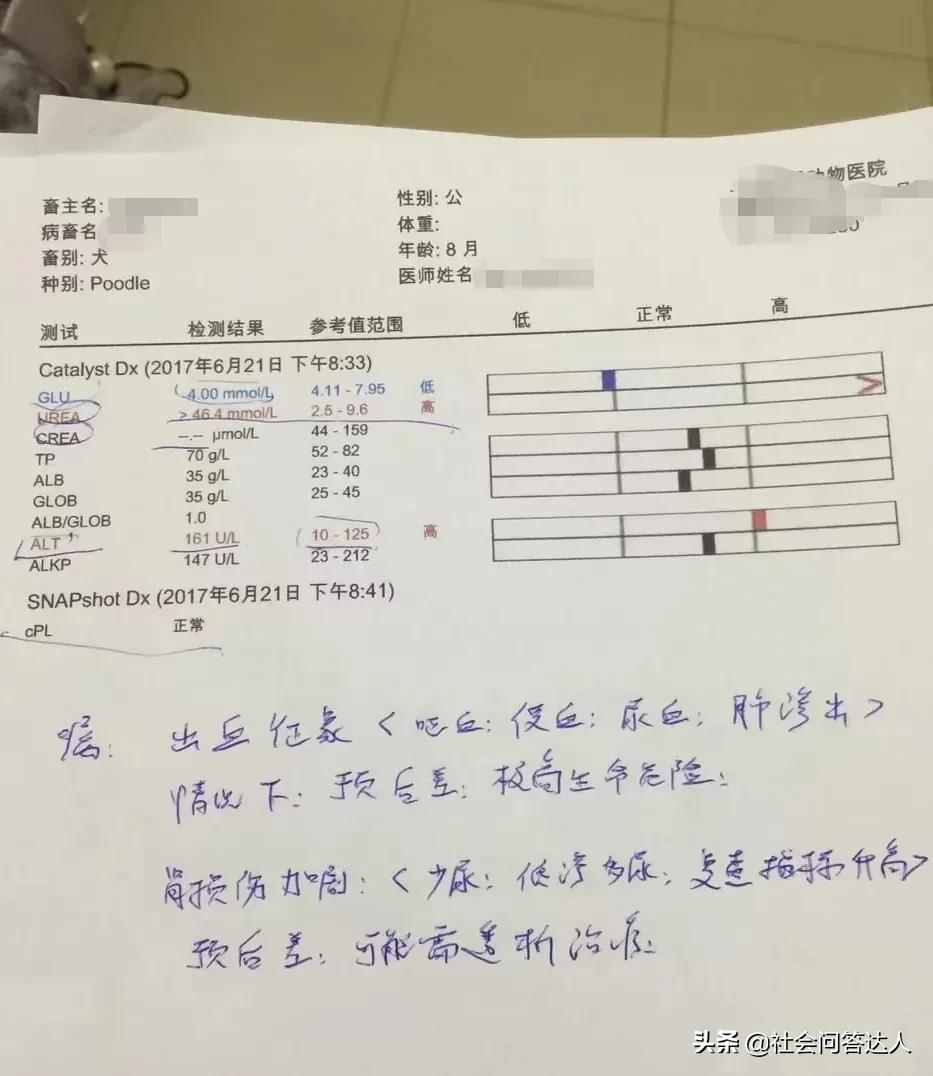 动物医院
畜主名:
性别: 公
病畜名
体重:
畜别: 犬
年龄: 8 月
种别: Poodle
医师姓名
测试 检测结果 参考值范围 低 正常 高
Catalyst Dx (2017年6月21日 下午8:33)
GLU 4.00 mmol/L 4.11 - 7.95 低
UREA > 46.4 mmol/L 2.5 - 9.6 高
CREA --.-- µmol/L 44 - 159
TP 70 g/L 52 - 82
ALB 35 g/L 23 - 40
GLOB 35 g/L 25 - 45
ALB/GLOB 1.0
ALT 161 U/L 10 - 125 高
ALKP 147 U/L 23 - 212
SNAPshot Dx (2017年6月21日 下午8:41)
cPL 正常
嘱: 出血征象<呕血; 便血; 尿血; 肺渗出>
情况下: 预后差; 极高生命危险;
肾损伤加剧: <少尿; 低渗多尿; 复查指标升高>
预后差; 可能需透析治疗;
头条 @社会问答达人